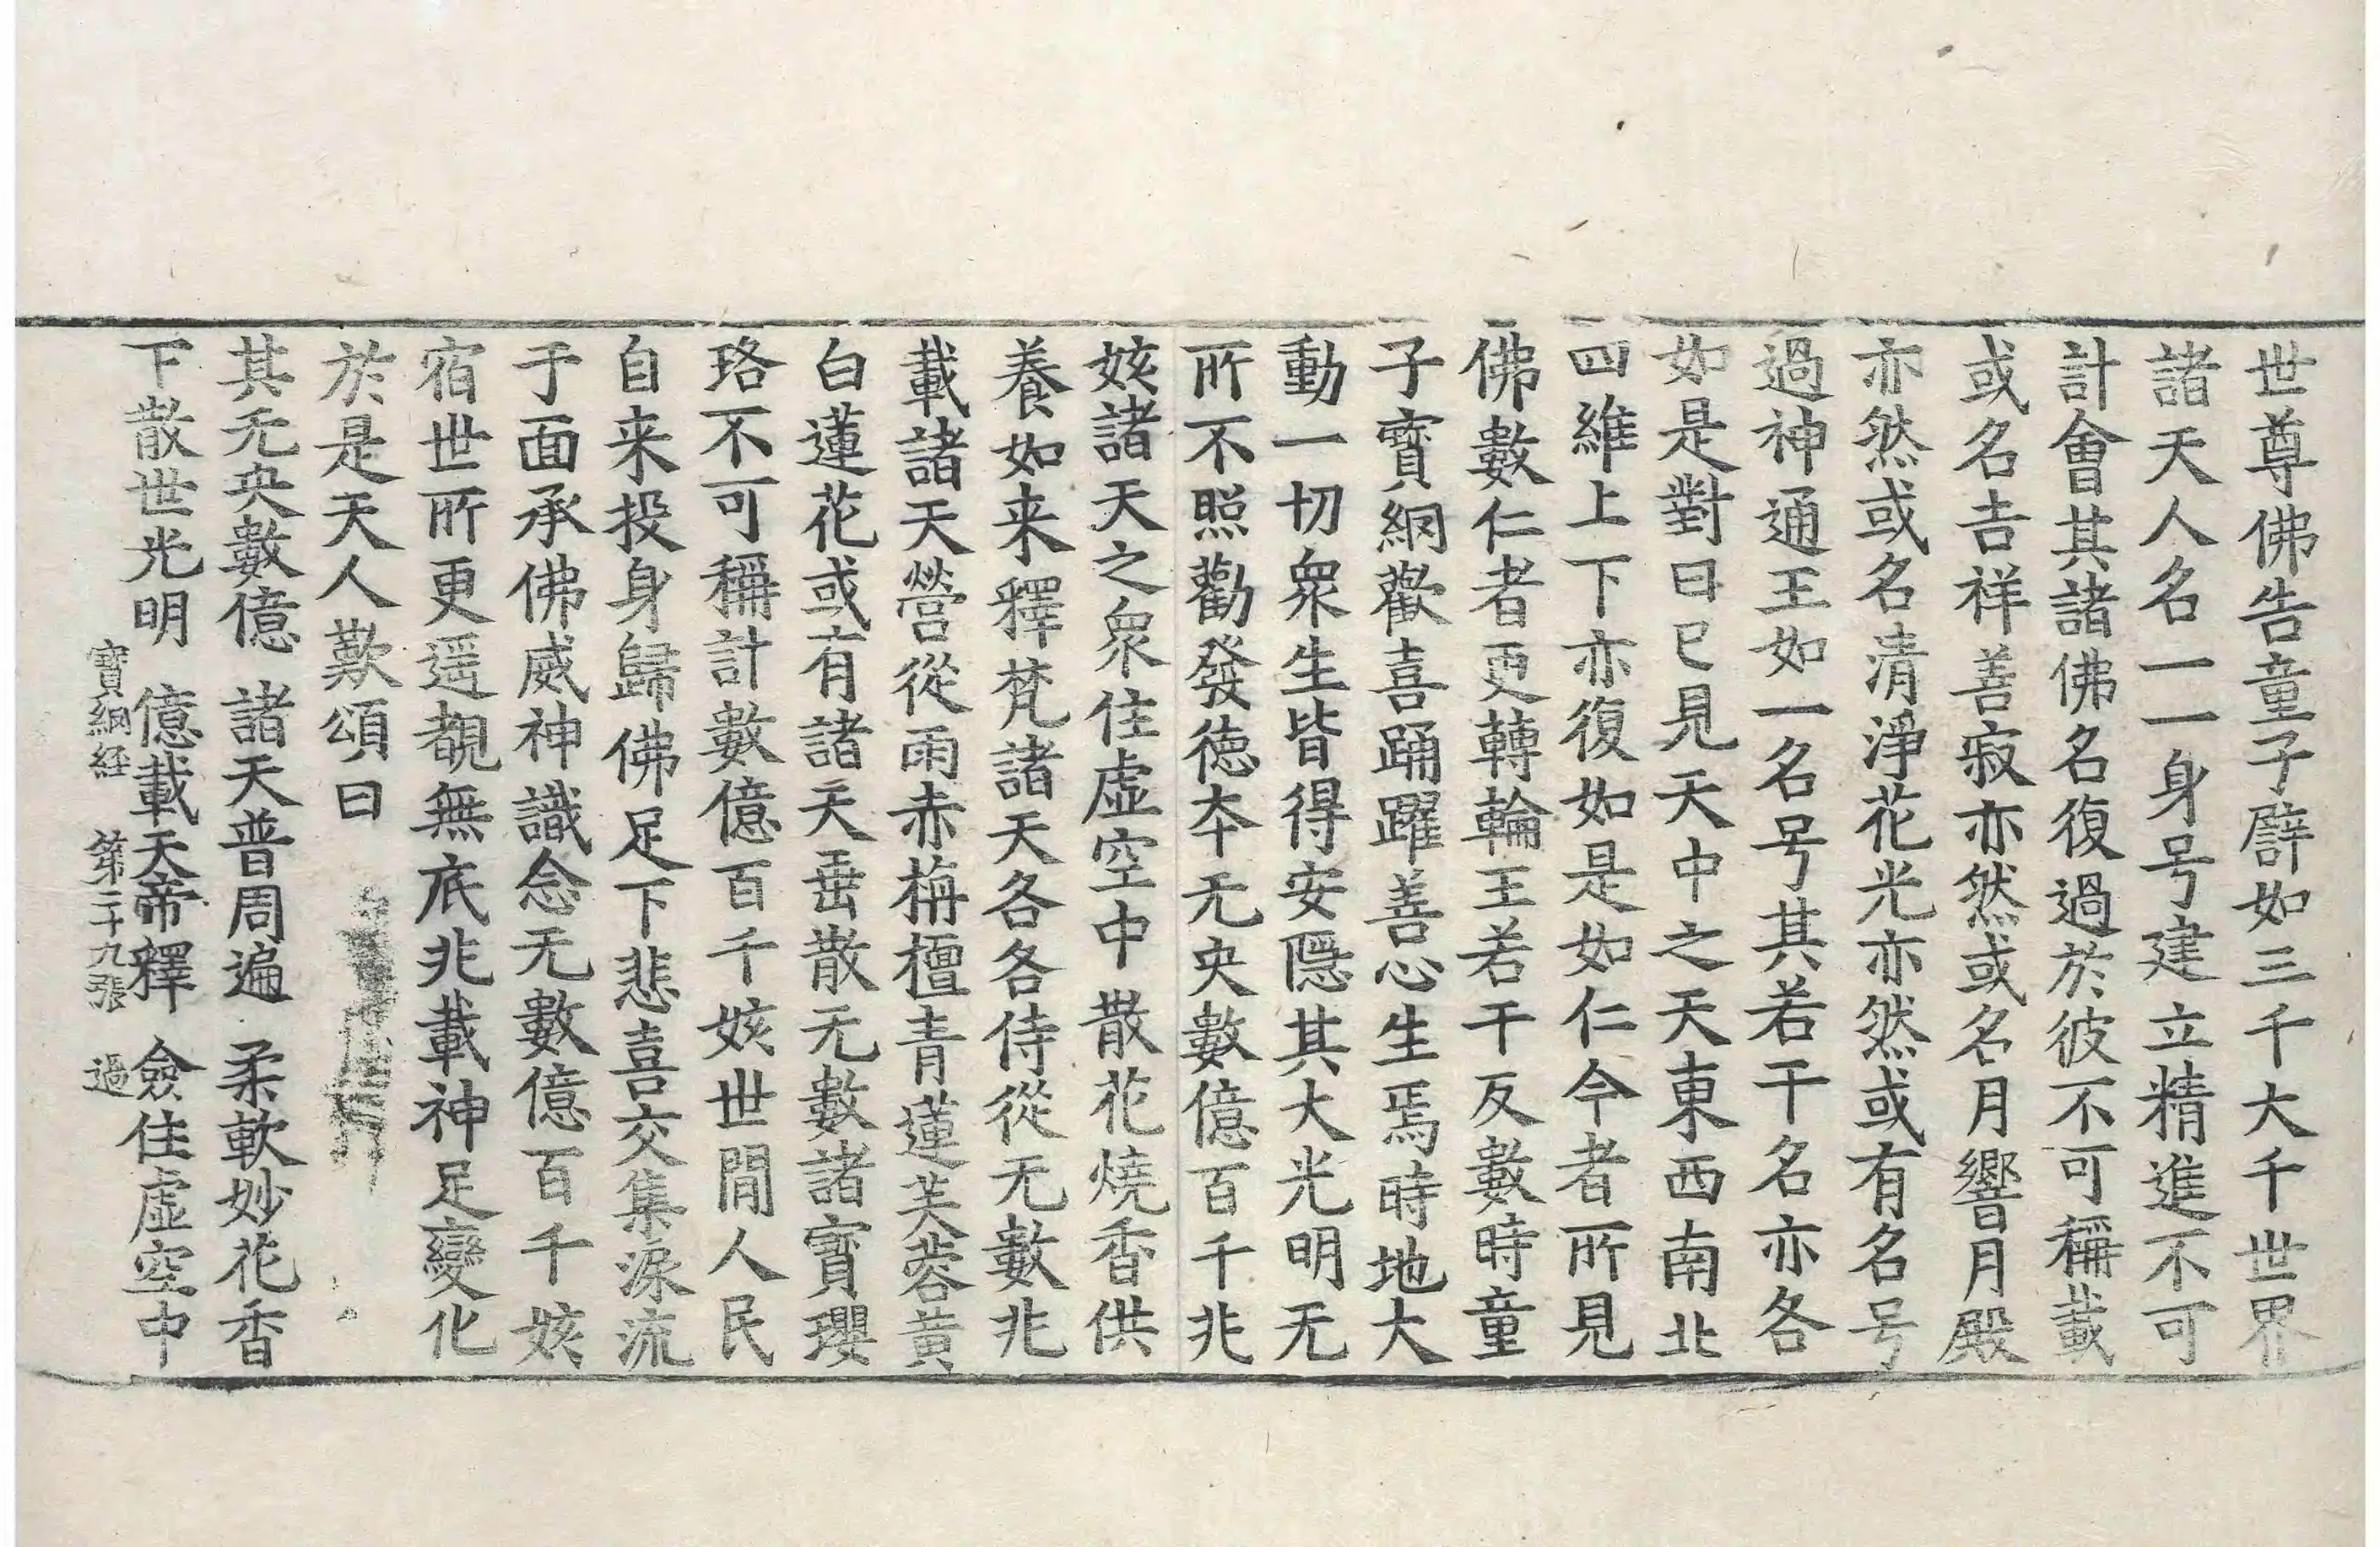 世尊佛告童子譬如三千大千世界
諸天人名一一身号建立精進不可
計會其諸佛名復過於彼不可稱載
或名吉祥善寂亦然或名月響月殿
亦然或名清淨花光亦然或有名号
過神通王如一名号其若干名亦各
如是對曰已見天中之天東西南北
四維上下亦復如是如仁今者所見
佛數仁者更轉輪王若干反數時童
子寶網歡喜踊躍善心生焉時地大
動一切衆生皆得安隱其大光明无
所不照勸發德本无央數億百千兆
姟諸天之衆住虛空中散花燒香供
養如来釋梵諸天各各侍從无數兆
載諸天營從雨赤栴檀青蓮芙蓉黃
白蓮花或有諸天垂散无數諸寶瓔
珞不可稱計數億百千姟世間人民
自来投身歸佛足下悲喜交集淚流
于面承佛威神識念无數億百千姟
宿世所更遥覩無底兆載神足變化
於是天人歎頌曰
其无央數億 諸天普周遍 柔軟妙花香
下散世光明 億載天帝釋 僉住虛空中
寶網経 第二十九張 過